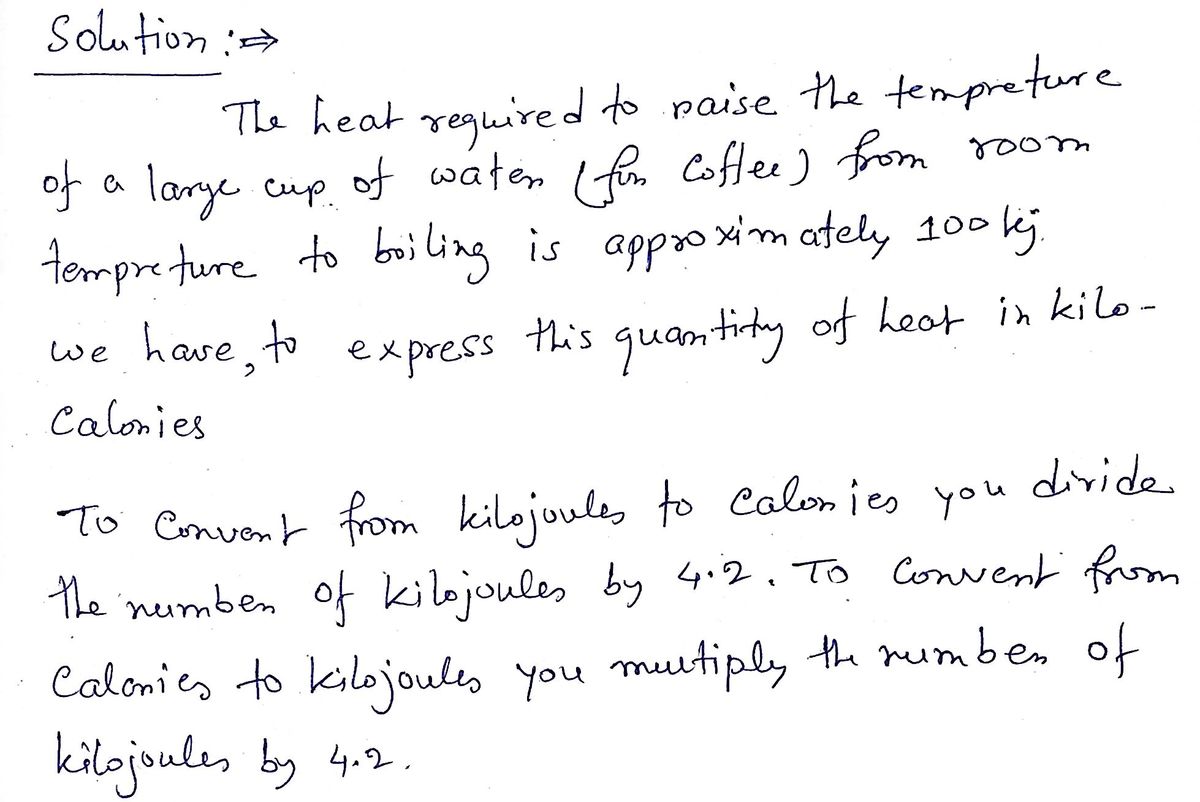 Solution :⇒
The heat required to raise the tempreture
of a large cup of water (for coffee) from room
tempreture to boiling is approximately 100 kj.
we have, to express this quantity of heat in kilo-
Calories
To Convert from kilojoules to calories you divide
the number of kilojoules by 4.2. To Convert from
Calories to kilojoules you multiply the number of
kilojoules by 4.2.